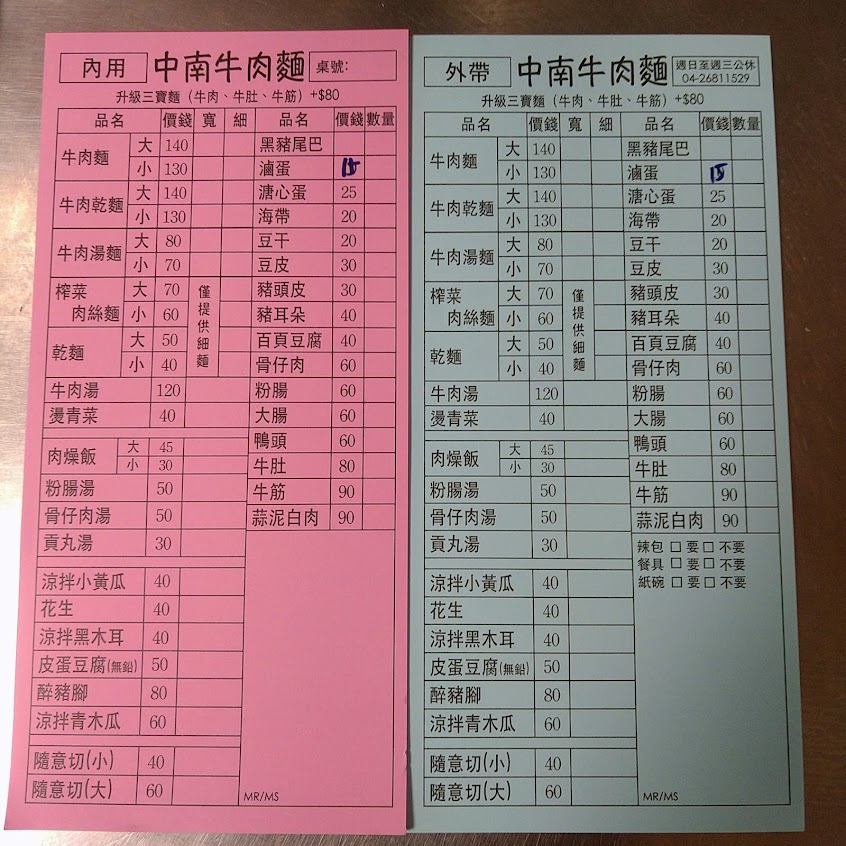 內用 中南牛肉麵 桌號:
升級三寶麵（牛肉、牛肚、牛筋）+$80
品名 價錢 寬 細 品名 價錢 數量
牛肉麵 大 140 黑豬尾巴
小 130 滷蛋 15
牛肉乾麵 大 140 溏心蛋 25
小 130 海帶 20
牛肉湯麵 大 80 豆干 20
小 70 豆皮 30
榨菜肉絲麵 大 70 僅提供細麵 豬頭皮 30
小 60 豬耳朵 40
乾麵 大 50 百頁豆腐 40
小 40 骨仔肉 60
牛肉湯 120 粉腸 60
燙青菜 40 大腸 60
鴨頭 60
肉燥飯 大 45 牛肚 80
小 30
粉腸湯 50 牛筋 90
骨仔肉湯 50 蒜泥白肉 90
貢丸湯 30
涼拌小黃瓜 40
花生 40
涼拌黑木耳 40
皮蛋豆腐(無鉛) 50
醉豬腳 80
涼拌青木瓜 60
隨意切(小) 40
隨意切(大) 60
MR/MS
外帶 中南牛肉麵 週日至週三公休
04-26811529
升級三寶麵（牛肉、牛肚、牛筋）+$80
品名 價錢 寬 細 品名 價錢 數量
牛肉麵 大 140 黑豬尾巴
小 130 滷蛋 15
牛肉乾麵 大 140 溏心蛋 25
小 130 海帶 20
牛肉湯麵 大 80 豆干 20
小 70 豆皮 30
榨菜肉絲麵 大 70 僅提供細麵 豬頭皮 30
小 60 豬耳朵 40
乾麵 大 50 百頁豆腐 40
小 40 骨仔肉 60
牛肉湯 120 粉腸 60
燙青菜 40 大腸 60
鴨頭 60
肉燥飯 大 45 牛肚 80
小 30
粉腸湯 50 牛筋 90
骨仔肉湯 50 蒜泥白肉 90
貢丸湯 30 辣包 □ 要 □ 不要
餐具 □ 要 □ 不要
紙碗 □ 要 □ 不要
涼拌小黃瓜 40
花生 40
涼拌黑木耳 40
皮蛋豆腐(無鉛) 50
醉豬腳 80
涼拌青木瓜 60
隨意切(小) 40
隨意切(大) 60
MR/MS